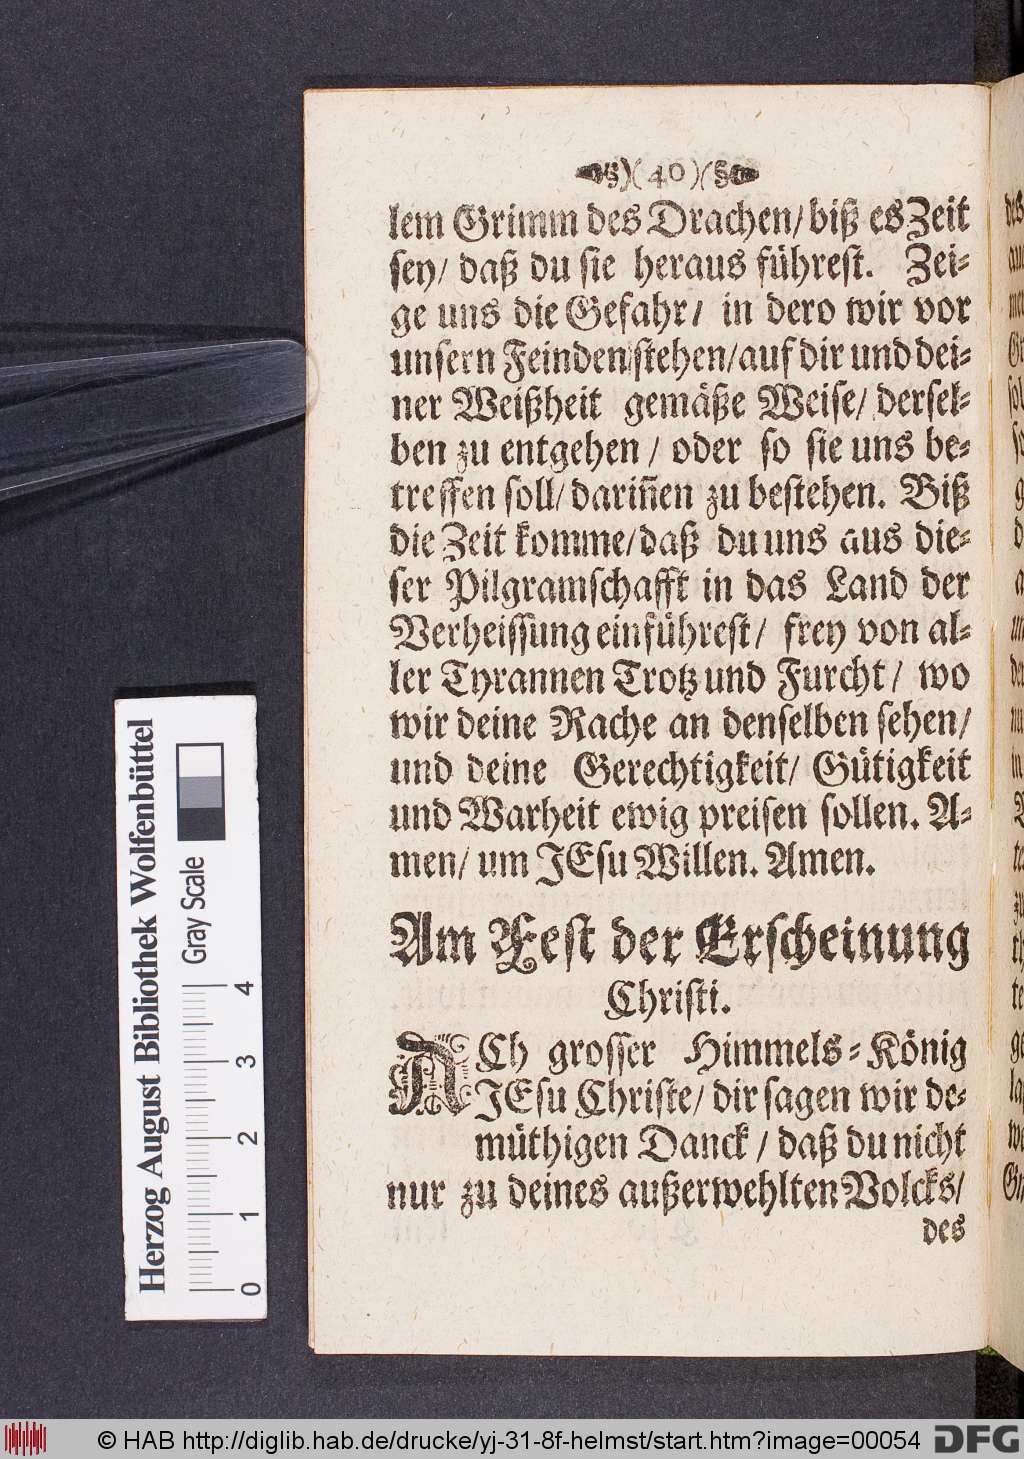 )(40)(
lem Grimm des Drachen/ biß es Zeit
sey/ daß du sie heraus führest. Zei-
ge uns die Gefahr/ in dero wir vor
unsern Feinden stehen/ auf dir und dei-
ner Weißheit gemäße Weise/ dersel-
ben zu entgehen / oder so sie uns be-
treffen soll/ dariñen zu bestehen. Biß
die Zeit komme/ daß du uns aus die-
ser Pilgramschafft in das Land der
Verheissung einführest/ frey von al-
ler Tyrannen Trotz und Furcht/ wo
wir deine Rache an denselben sehen/
und deine Gerechtigkeit/ Gütigkeit
und Warheit ewig preisen sollen. A-
men/ um JEsu Willen. Amen.
Am Fest der Erscheinung
Christi.
ACh grosser Himmels-König
JEsu Christe/ dir sagen wir de-
müthigen Danck / daß du nicht
nur zu deines außerwehlten Volcks/
des
Herzog August Bibliothek Wolfenbüttel
Gray Scale
0 1 2 3 4
© HAB http://diglib.hab.de/drucke/yj-31-8f-helmst/start.htm?image=00054
DFG